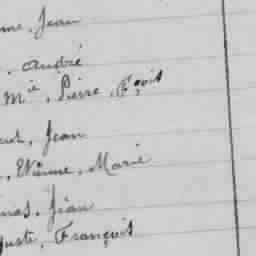 me, Jean
. André
Mie, Pierre, Fçois
Jean
, Etienne, Marie
mas, Jean
guste, François